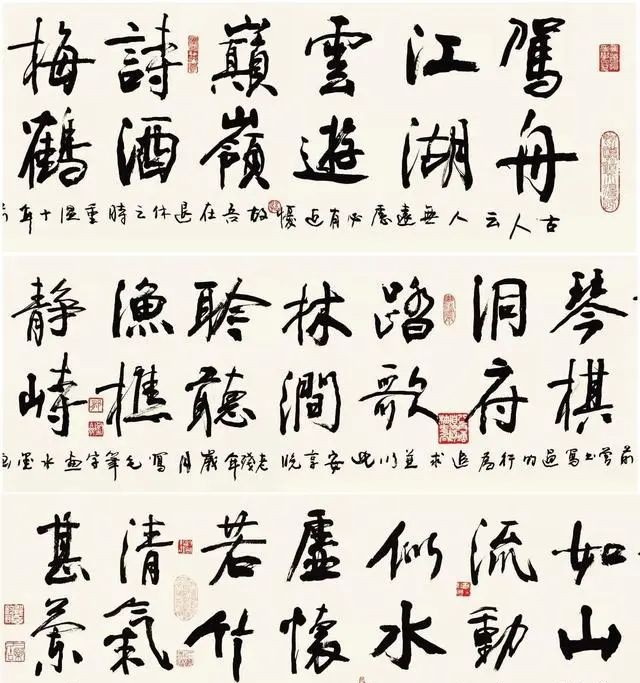 駕舟
江湖
雲遊
巔嶺
詩酒
梅鶴
古人云人無遠慮必有近憂故吾在退休之時重温十年前
琴棋
洞府
踏歌
林澗
聆聽
漁樵
静峙
前寫過的行為追求並以此安享晚老殘年歲月寫毛筆字畫水墨
如山
流動
似水
虛懷
若竹
清氣
甚蘭